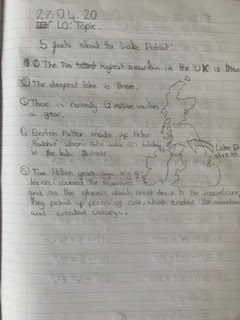 27.04.20
LO: Topic.
5 facts about the Lake District.
① The tallest highest mountain in the UK is there
② The deepest lake is there.
③ There is normally 12 million visitors
a year.
④ Beatrix Potter made up Peter
Rabbit when she was on holiday
in the lake District.
⑤ Two Million years ago,
ice covered the mountains
and as the glaciers slowly down the mountains,
They picked up pieces of rock, which eroded the mountains
and created valleys.
Lake D
strict